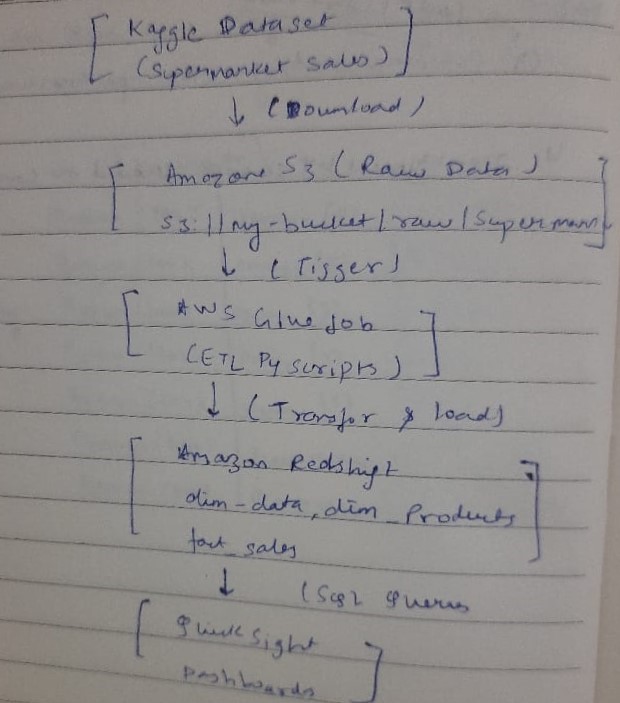 [ Kaggle Dataset
(Supermarket Sales) ]
↓ (Download)
[ Amazon S3 (Raw Data)
S3://my-bucket/raw/Superman ]
↓ (Tigger)
[ AWS Glue Job
(ETL Py scripts) ]
↓ (Transfor & load)
[ Amazon Redshift
dim-data, dim_Products
fact_sales ]
↓ (Sql Queries
[ QuickSight
Dashboards ]